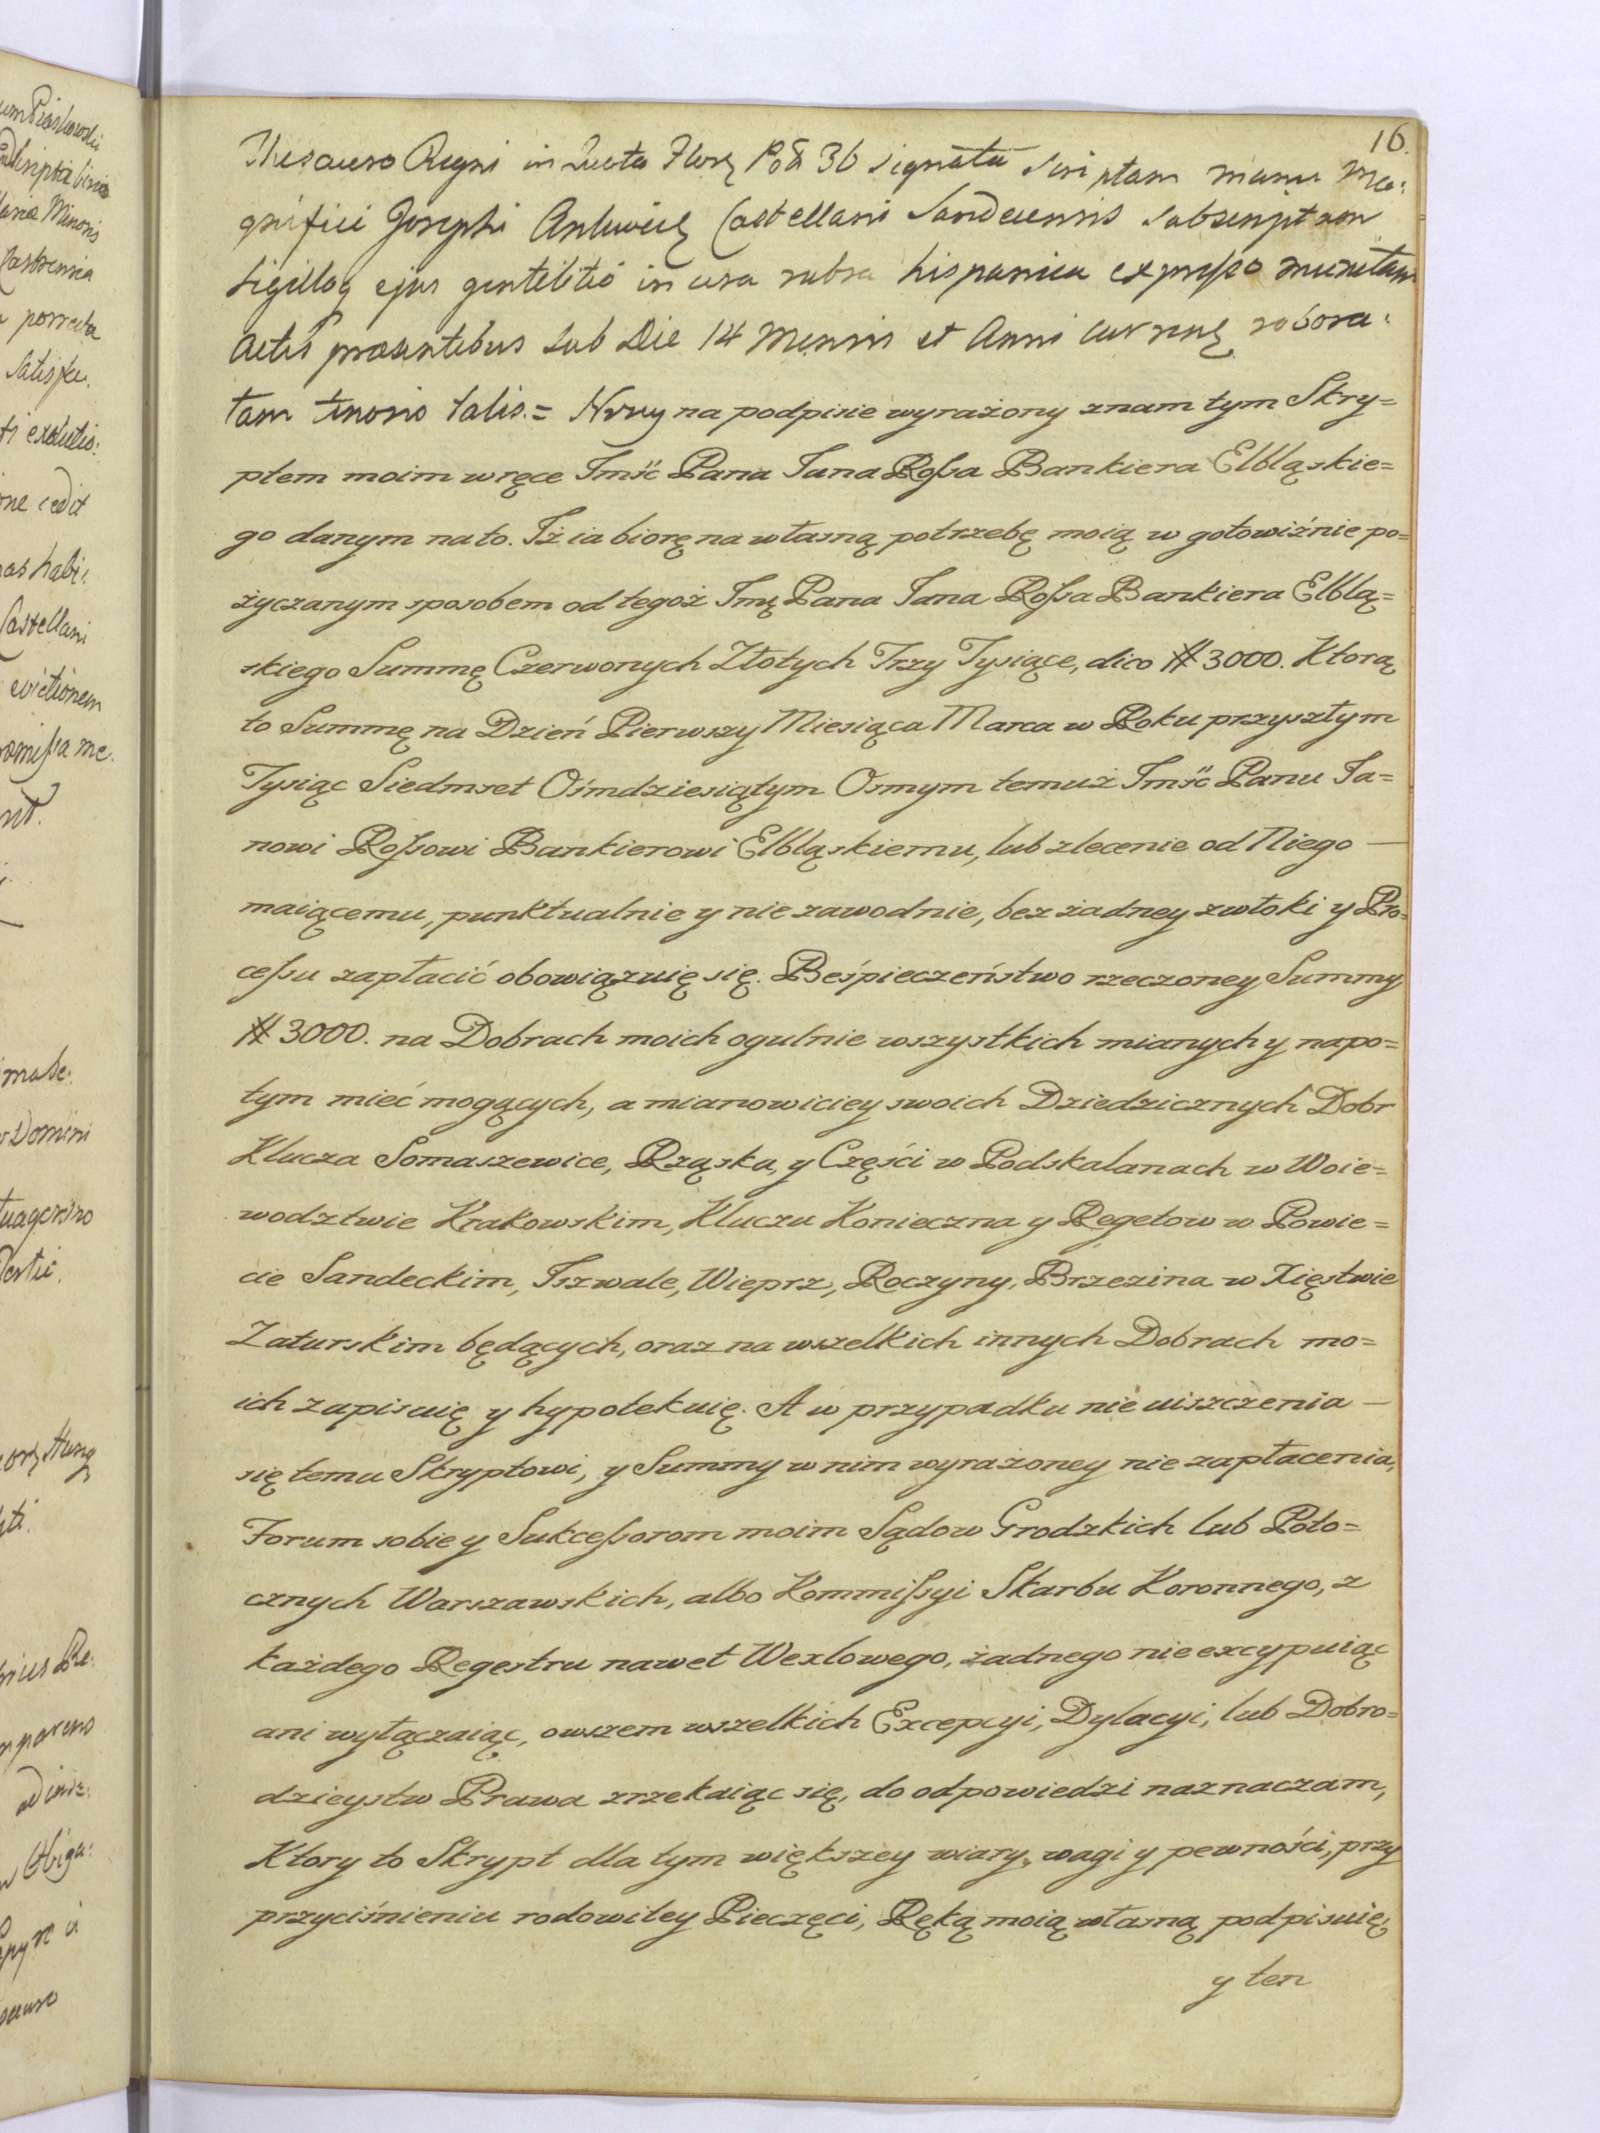 16.
Thesauro Regni in Quota Flor. Pol. 36 signata scriptam manu Ma:
gnifici Josephi Ankwicz Castellani Sandecensis subscriptam
sigilloq ejus gentilitio in cera rubra hispanica expresso munitam
Actis praesentibus sub Die 14 Mensis et Anni curren. robora:
tam tenoris talis. = Niżey na podpisie wyrażony znam tym Skry=
ptem moim w ręce Jmść Pana Jana Rossa Bankiera Elbląskie=
go danym na to. Iż ia biorę na własną potrzebę moią w gotowiźnie po=
życzanym sposobem od tegoż Jmę Pana Jana Rossa Bankiera Elblą=
skiego Summę Czerwonych Złotych Trzy Tysiące, dico # 3000. Ktorą
to Summę na Dzień Pierwszy Miesiąca Marca w Roku przyszłym
Tysiąc Siedmset Ośmdziesiątym Osmym temuż Jmść Panu Ja=
nowi Rossowi Bankierowi Elbląskiemu, lub zlecenie od Niego —
maiącemu, punktualnie y nie zawodnie, bez żadney zwłoki y Pro=
cessu zapłacić obowiązuię się. Beśpieczeństwo rzeczoney Summy
# 3000. na Dobrach moich ogulnie wszystkich mianych y napo=
tym mieć mogących, a mianowiciey swoich Dziedzicznych Dobr
Klucza Somaszewice, Rząska, y Części w Podskalanach w Woie=
wodztwie Krakowskim, Kluczu Konieczna y Regetow w Powie=
cie Sandeckim, Iszwale, Wieprz, Roczyny, Brzezina w Xięstwie
Zaturskim będących, oraz na wszelkich innych Dobrach mo=
ich zapisuię y hypotekuię. A w przypadku nie uiszczenia —
się temu Skryptowi, y Summy w nim wyrażoney nie zapłacenia,
Forum sobie y Sukcessorom moim Sądow Grodzkich lub Poto=
cznych Warszawskich, albo Kommissyi Skarbu Koronnego, z
każdego Regestru nawet Wexlowego, żadnego nie excypuiąc
ani wyłączaiąc, owszem wszelkich Excepcyi, Dylacyi, lub Dobro=
dzieystw Prawa zrzekaiąc się, do odpowiedzi naznaczam,
Ktory to Skrypt dla tym większey wiary, wagi y pewności, przy
przyciśnieniu rodowitey Pieczęci, Ręką moią własną podpisuię,
y ten